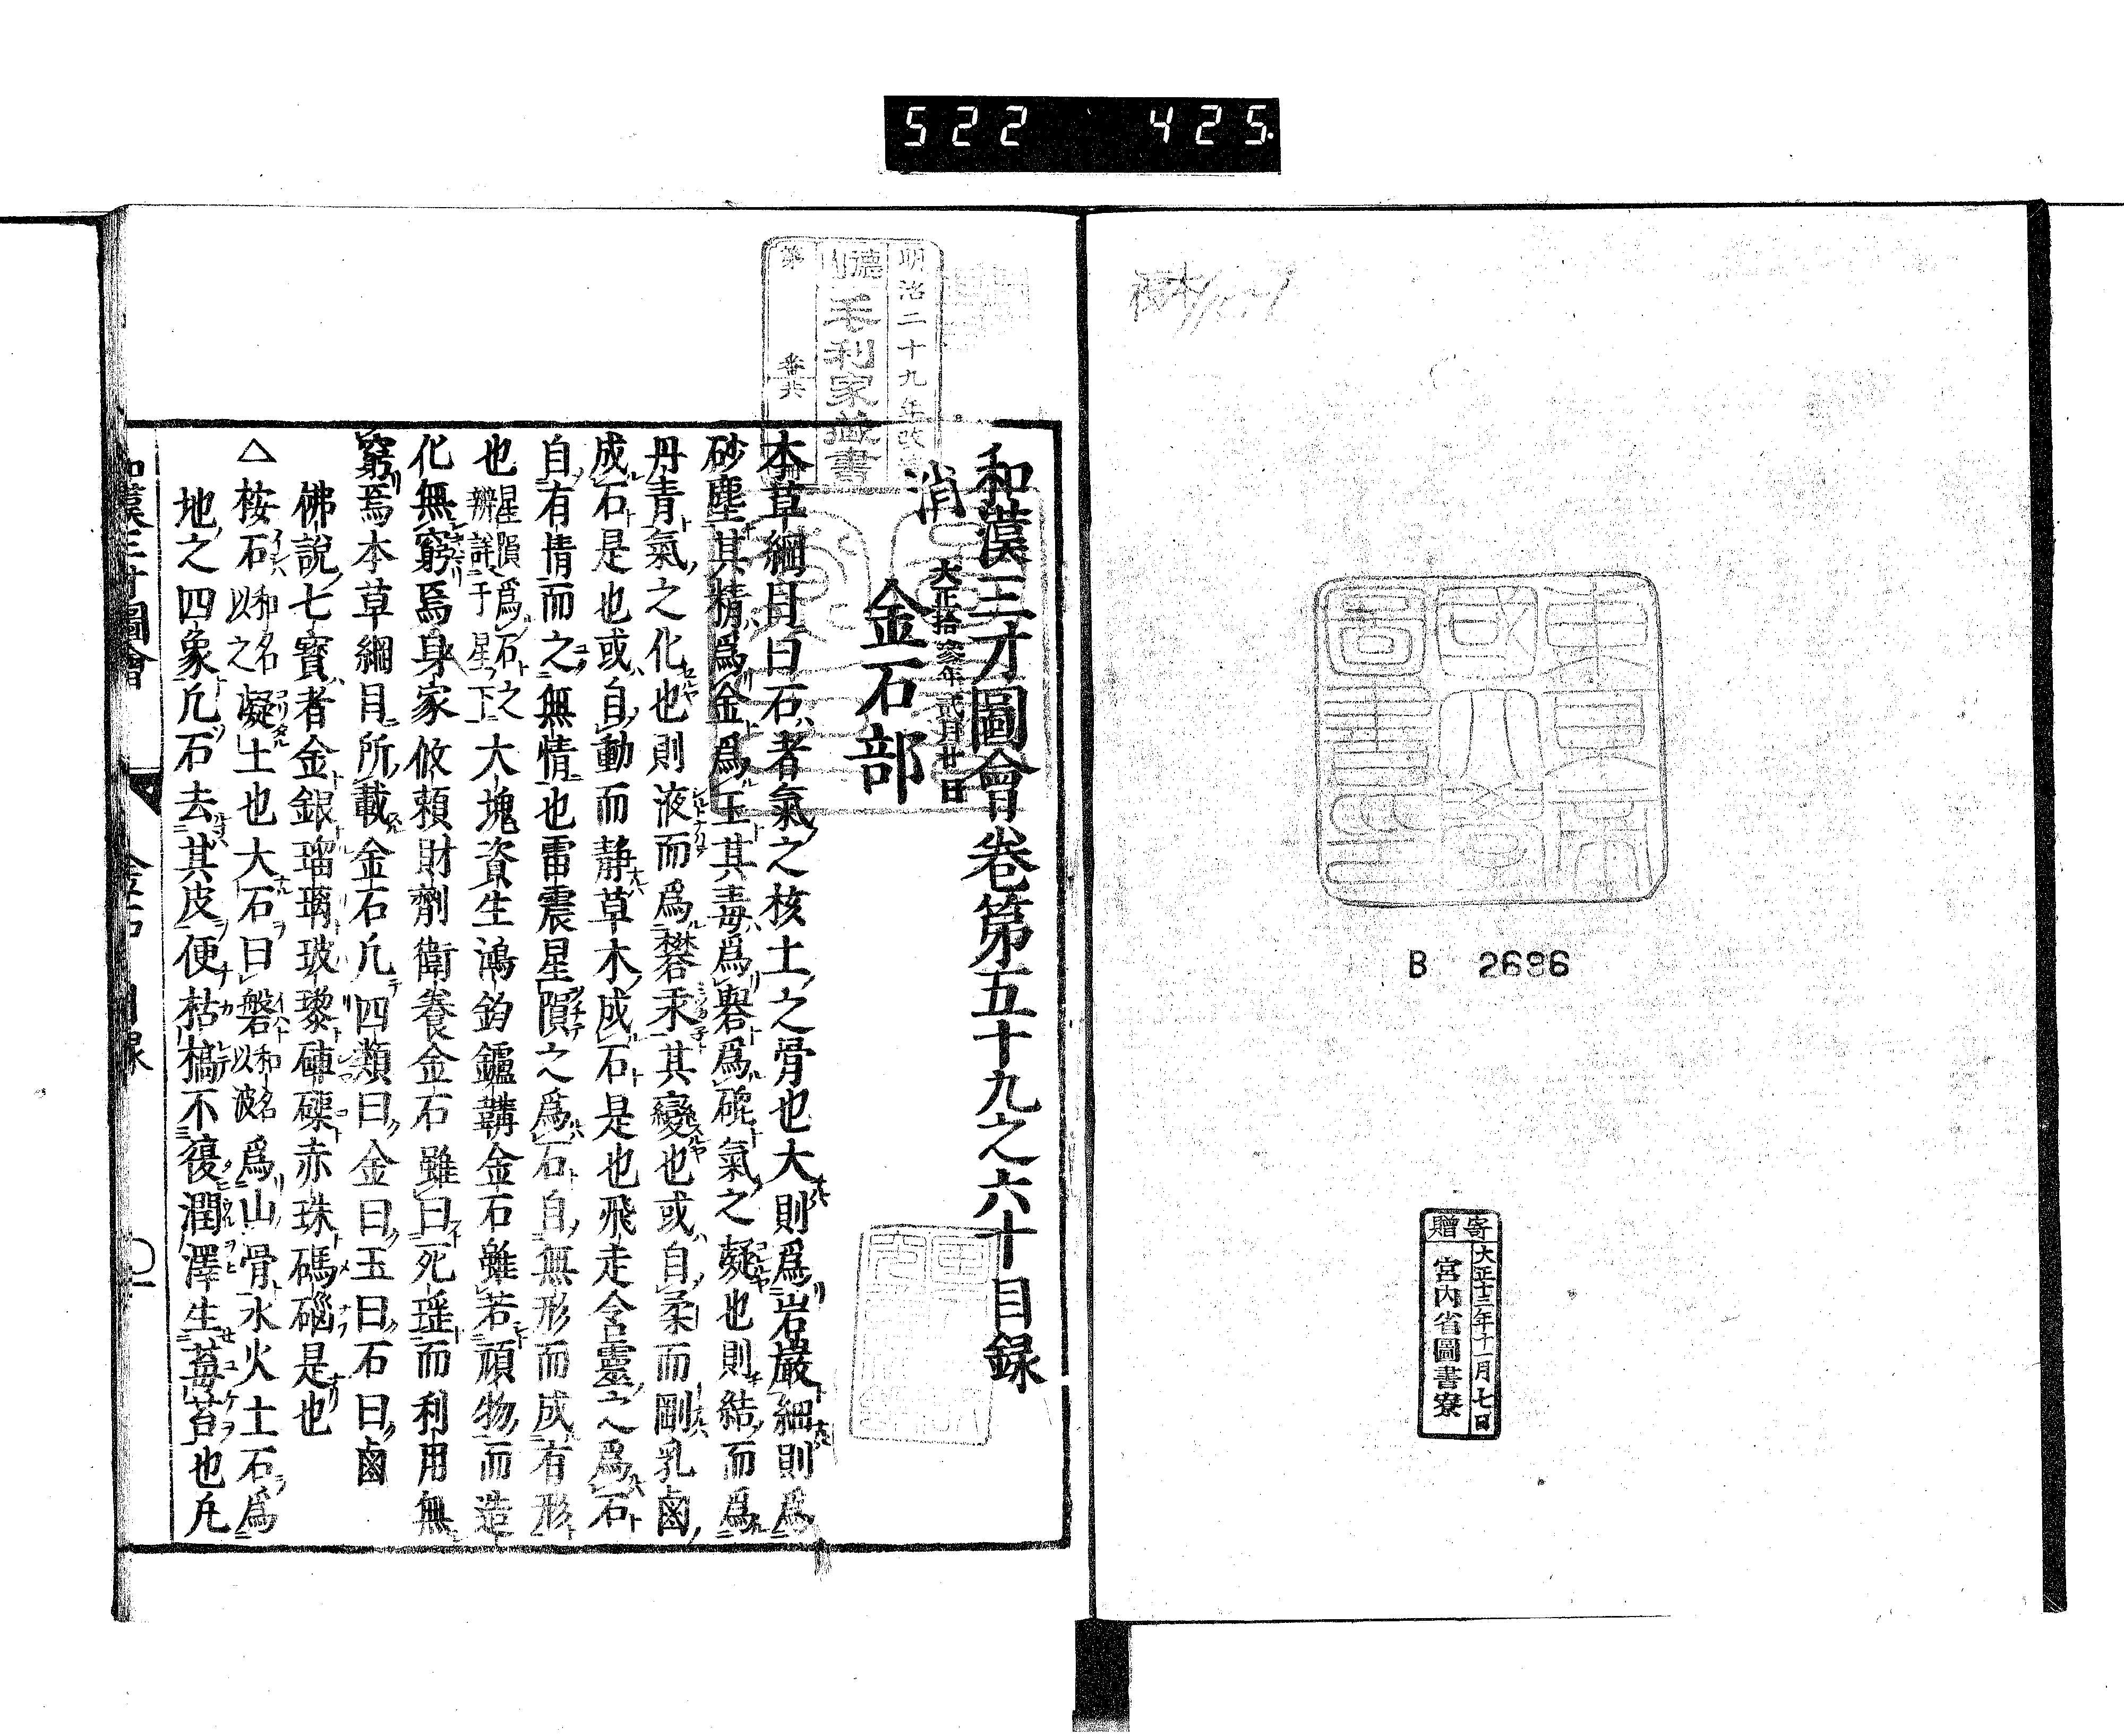 522 425
東京帝國大學圖書印
B 2696
寄贈
大正十三年十一月七日
宮內省圖書寮
明治二十九年改
德山
毛利家藏書
第 番共
和漢三才圖會卷第五十九之六十目録
消
大正拾參年貳月廿日
金石部
本草綱目曰石者氣之核土之骨也大則爲岩巖細則爲
砂塵其精爲金爲玉其毒爲礜爲砒氣之凝也則結而爲
丹青氣之化也則液而爲礬汞其變也或自柔而剛乳鹵
成石是也或自動而靜草木成石是也飛走含靈之爲石
自有情而之無情也雷震星隕之爲石自無形而成有形
也星隕爲石之辨詳于星下大塊資生鴻鈞鑪鞴金石雖若頑物而造
化無窮焉身家攸賴財劑衛養金石雖曰死瑤而利用無
窮焉本草綱目所載金石凡四類曰金曰玉曰石曰鹵
佛說七寶者金銀瑠璃玻瓈硨磲赤珠碼碯是也
△桉石和名以之凝土也大石曰磐和名以波爲山骨水火土石爲
地之四象凡石去其皮便枯槁不復潤澤生莓苔也凡
和漢三才圖會 金石 目録 〇一